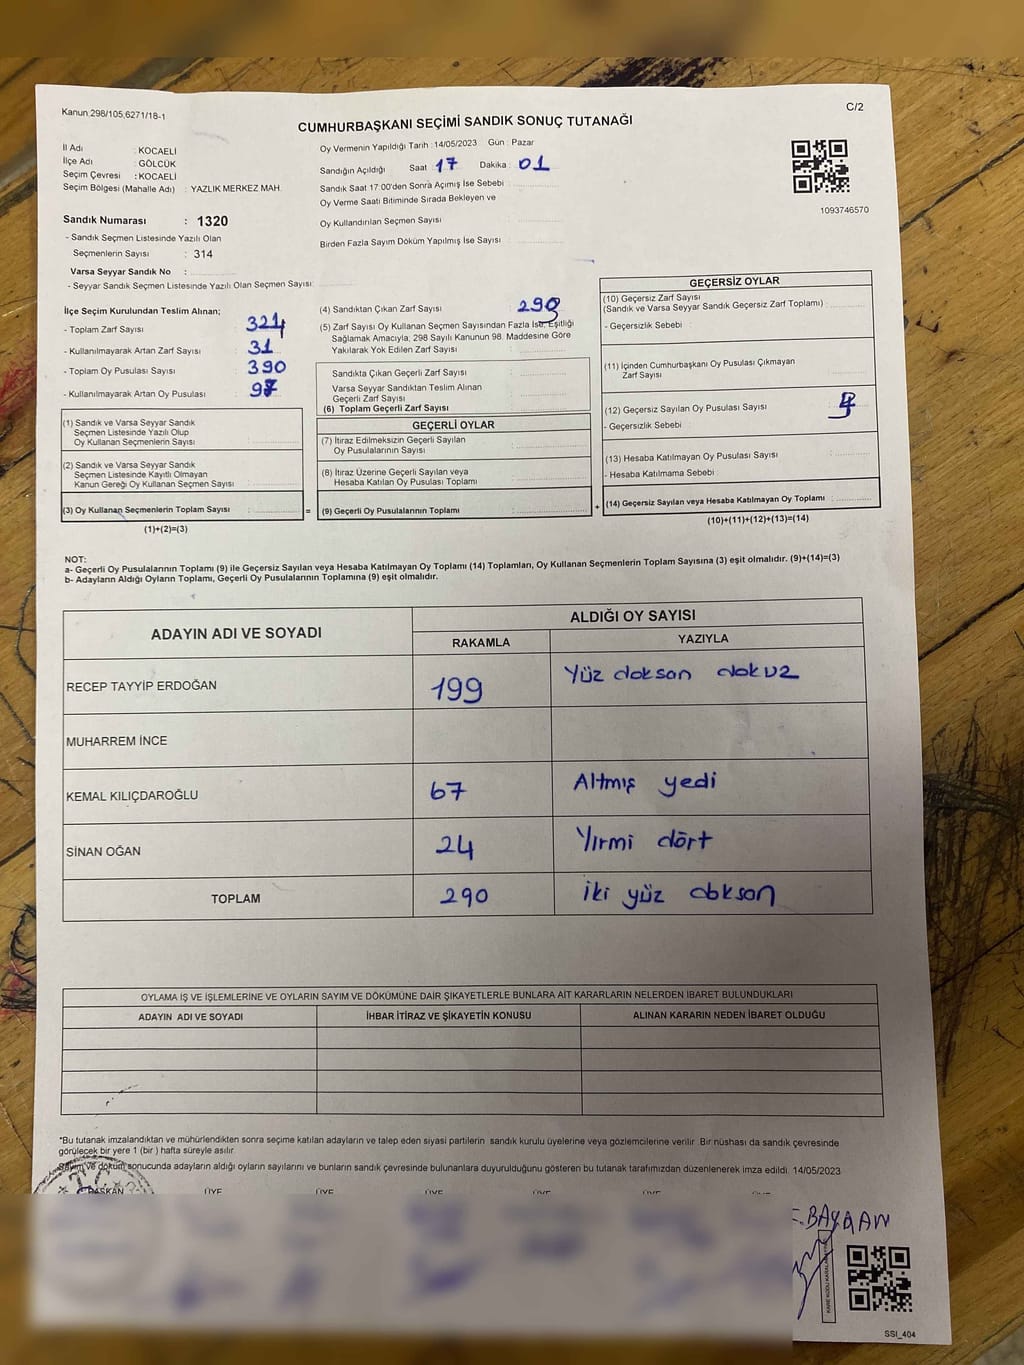 Kanun 298/105,6271/18-1
C/2
CUMHURBAŞKANI SEÇİMİ SANDIK SONUÇ TUTANAĞI
İl Adı : KOCAELİ
İlçe Adı : GÖLCÜK
Seçim Çevresi : KOCAELİ
Seçim Bölgesi (Mahalle Adı) : YAZLIK MERKEZ MAH.
Sandık Numarası : 1320
- Sandık Seçmen Listesinde Yazılı Olan
Seçmenlerin Sayısı : 314
Varsa Seyyar Sandık No :
- Seyyar Sandık Seçmen Listesinde Yazılı Olan Seçmen Sayısı:
Oy Vermenin Yapıldığı Tarih : 14/05/2023 Gün : Pazar
Sandığın Açıldığı Saat 17 Dakika : 01
Sandık Saat 17:00'den Sonra Açımış İse Sebebi :
Oy Verme Saati Bitiminde Sırada Bekleyen ve
Oy Kullandırılan Seçmen Sayısı :
Birden Fazla Sayım Döküm Yapılmış İse Sayısı :
1093746570
İlçe Seçim Kurulundan Teslim Alınan;
- Toplam Zarf Sayısı : 324
- Kullanılmayarak Artan Zarf Sayısı : 31
- Toplam Oy Pusulası Sayısı : 390
- Kullanılmayarak Artan Oy Pusulası :
(1) Sandık ve Varsa Seyyar Sandık
Seçmen Listesinde Yazılı Olup
Oy Kullanan Seçmenlerin Sayısı :
(2) Sandık ve Varsa Seyyar Sandık
Seçmen Listesinde Kayıtlı Olmayan
Kanun Gereği Oy Kullanan Seçmen Sayısı :
(3) Oy Kullanan Seçmenlerin Toplam Sayısı :
(1)+(2)=(3)
=
(4) Sandıktan Çıkan Zarf Sayısı :
(5) Zarf Sayısı Oy Kullanan Seçmen Sayısından Fazla İse, Eşitliği
Sağlamak Amacıyla, 298 Sayılı Kanunun 98. Maddesine Göre
Yakılarak Yok Edilen Zarf Sayısı :
Sandıkta Çıkan Geçerli Zarf Sayısı :
Varsa Seyyar Sandıktan Teslim Alınan
Geçerli Zarf Sayısı :
(6) Toplam Geçerli Zarf Sayısı :
GEÇERLİ OYLAR
(7) İtiraz Edilmeksizin Geçerli Sayılan
Oy Pusulalarının Sayısı :
(8) İtiraz Üzerine Geçerli Sayılan veya
Hesaba Katılan Oy Pusulası Toplamı :
(9) Geçerli Oy Pusulalarının Toplamı :
+
GEÇERSİZ OYLAR
(10) Geçersiz Zarf Sayısı
(Sandık ve Varsa Seyyar Sandık Geçersiz Zarf Toplamı) :
- Geçersizlik Sebebi :
(11) İçinden Cumhurbaşkanı Oy Pusulası Çıkmayan
Zarf Sayısı :
(12) Geçersiz Sayılan Oy Pusulası Sayısı :
- Geçersizlik Sebebi :
(13) Hesaba Katılmayan Oy Pusulası Sayısı :
- Hesaba Katılmama Sebebi :
(14) Geçersiz Sayılan veya Hesaba Katılmayan Oy Toplamı :
(10)+(11)+(12)+(13)=(14)
NOT:
a- Geçerli Oy Pusulalarının Toplamı (9) ile Geçersiz Sayılan veya Hesaba Katılmayan Oy Toplamı (14) Toplamları, Oy Kullanan Seçmenlerin Toplam Sayısına (3) eşit olmalıdır. (9)+(14)=(3)
b- Adayların Aldığı Oyların Toplamı, Geçerli Oy Pusulalarının Toplamına (9) eşit olmalıdır.
ADAYIN ADI VE SOYADI
ALDIĞI OY SAYISI
RAKAMLA YAZIYLA
RECEP TAYYİP ERDOĞAN 199 Yüz doksan dokuz
MUHARREM İNCE
KEMAL KILIÇDAROĞLU 67 Altmış yedi
SİNAN OĞAN 24 Yirmi dört
TOPLAM 290 iki yüz doksan
OYLAMA İŞ VE İŞLEMLERİNE VE OYLARIN SAYIM VE DÖKÜMÜNE DAİR ŞİKAYETLERLE BUNLARA AİT KARARLARIN NELERDEN İBARET BULUNDUKLARI
ADAYIN ADI VE SOYADI İHBAR İTİRAZ VE ŞİKAYETİN KONUSU ALINAN KARARIN NEDEN İBARET OLDUĞU
*Bu tutanak imzalandıktan ve mühürlendikten sonra seçime katılan adayların ve talep eden siyasi partilerin sandık kurulu üyelerine veya gözlemcilerine verilir. Bir nüshası da sandık çevresinde
görülecek bir yere 1 (bir) hafta süreyle asılır.
Sayım ve döküm sonucunda adayların aldığı oyların sayılarını ve bunların sandık çevresinde bulunanlara duyurulduğunu gösteren bu tutanak tarafımızdan düzenlenerek imza edildi. 14/05/2023
T.C.
BAŞKAN ÜYE ÜYE ÜYE ÜYE ÜYE ÜYE
SSI_404